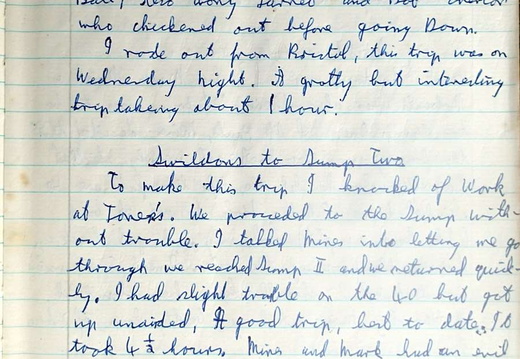 who chickened out before going Down.
I rode out from Bristol, this trip was on
Wednesday night. A grotty but interesting
trip takeing about 1 hour.
Swildons to Sump Two
To make this trip I knocked of Work
at Jones's. We proceded to the Sump with-
out trouble. I talked Mines into letting me go
through we reached Sump II and we returned quick-
ly. I had slight trouble on the 40 but got
up unaided, A good trip, best to date. It
took 4 ½ hours. Mines and Mark had an evil